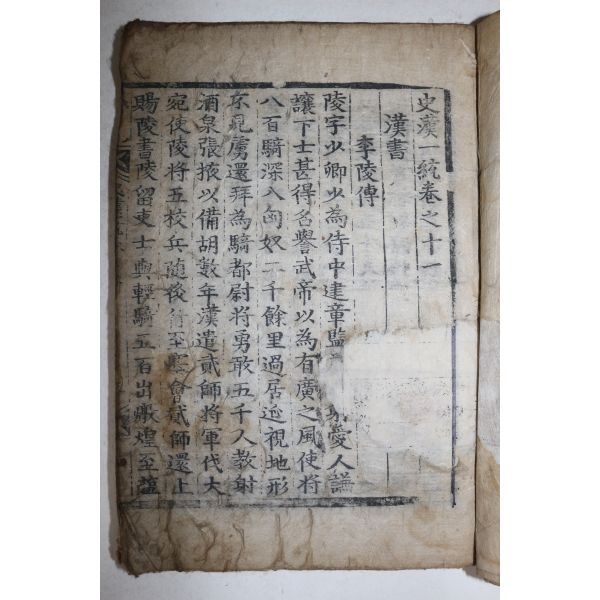 史漢一統卷之十一
漢書
李陵傳
陵字少卿少為侍中建章監 射愛人謙
讓下士甚得名譽武帝以為有廣之風使將
八百騎深入匈奴二千餘里過居延視地形
不見虜還拜為騎都尉將勇敢五千人教射
酒泉張掖以備胡數年漢遣貳師將軍伐大
宛使陵將五校兵隨後行至塞會貳師還上
賜陵書陵留吏士與輕騎五百出燉煌至鹽